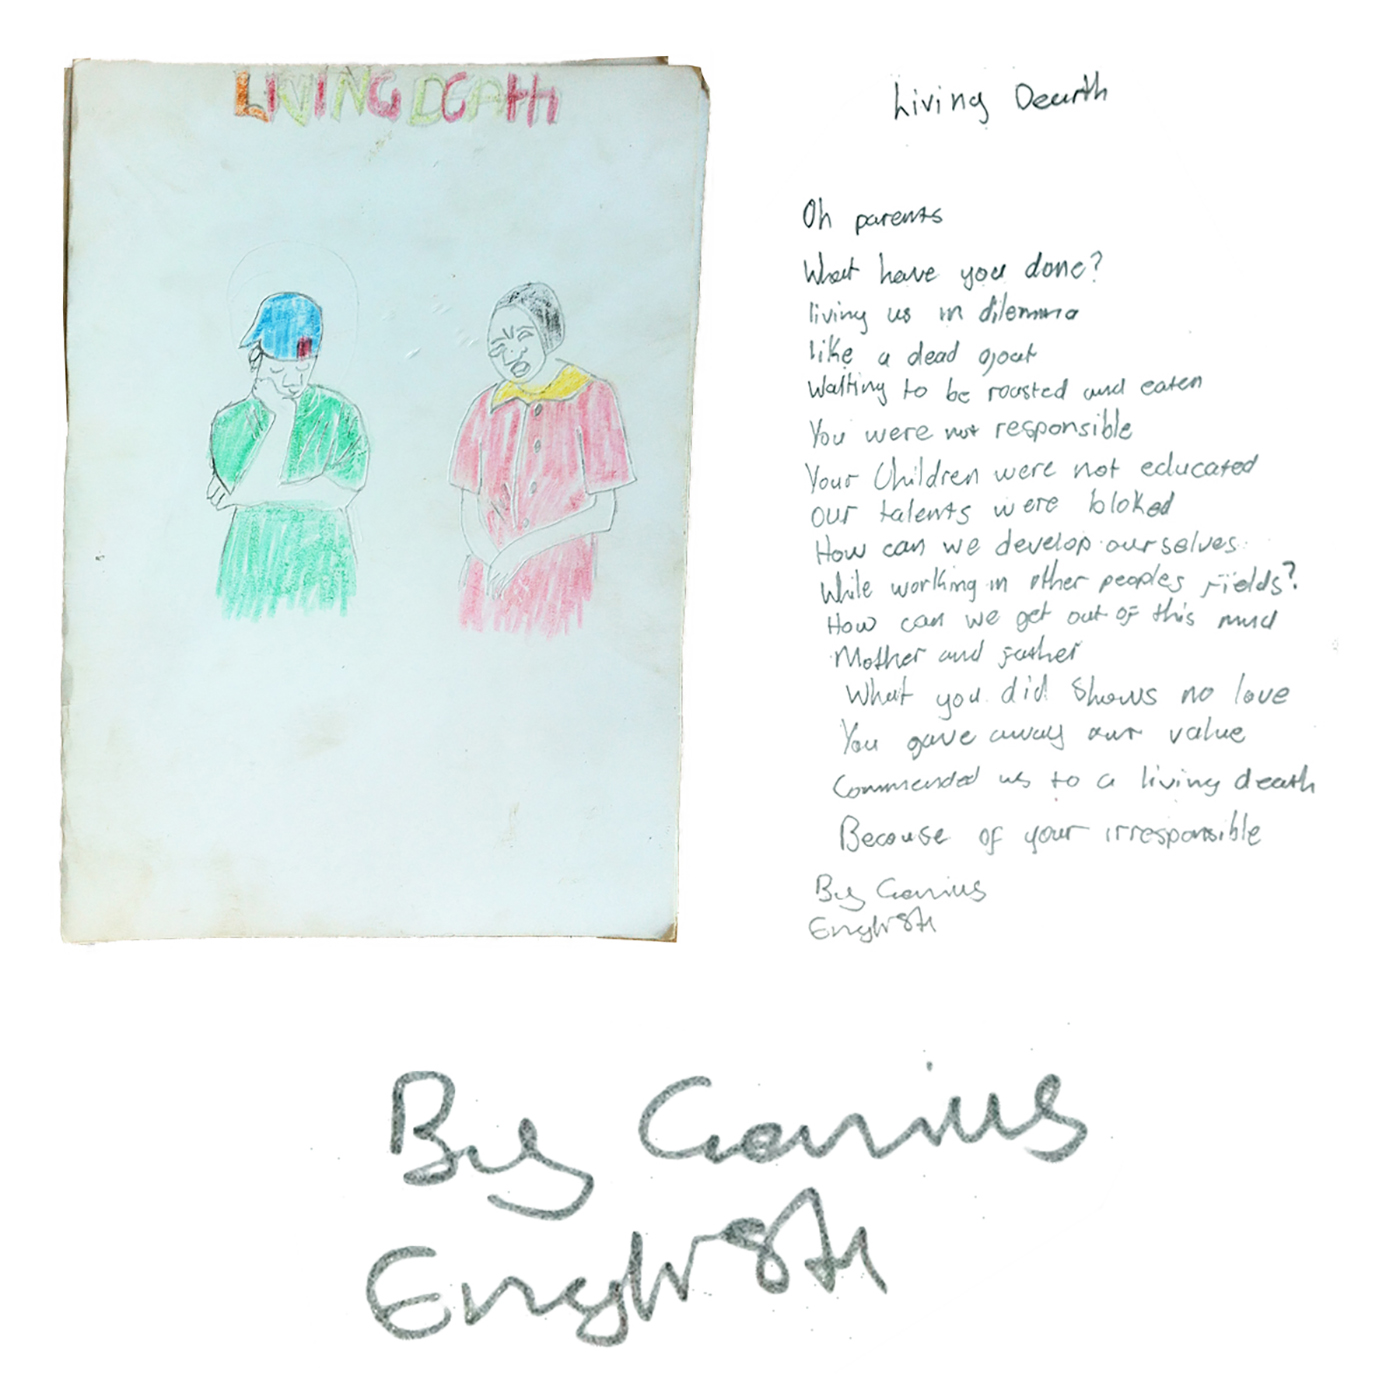 LIVING DEATH
Living Death
Oh parents
What have you done?
living us in dilemma
like a dead goat
Waiting to be roasted and eaten
You were not responsible
Your Children were not educated
Our talents were bloked
How can we develop ourselves
While working in other peoples Fields?
How can we get out of this mud
Mother and father
What you did shows no love
You gave away our value
Commended us to a living death
Because of your irresponsible
By Genius
English
By Genius
English